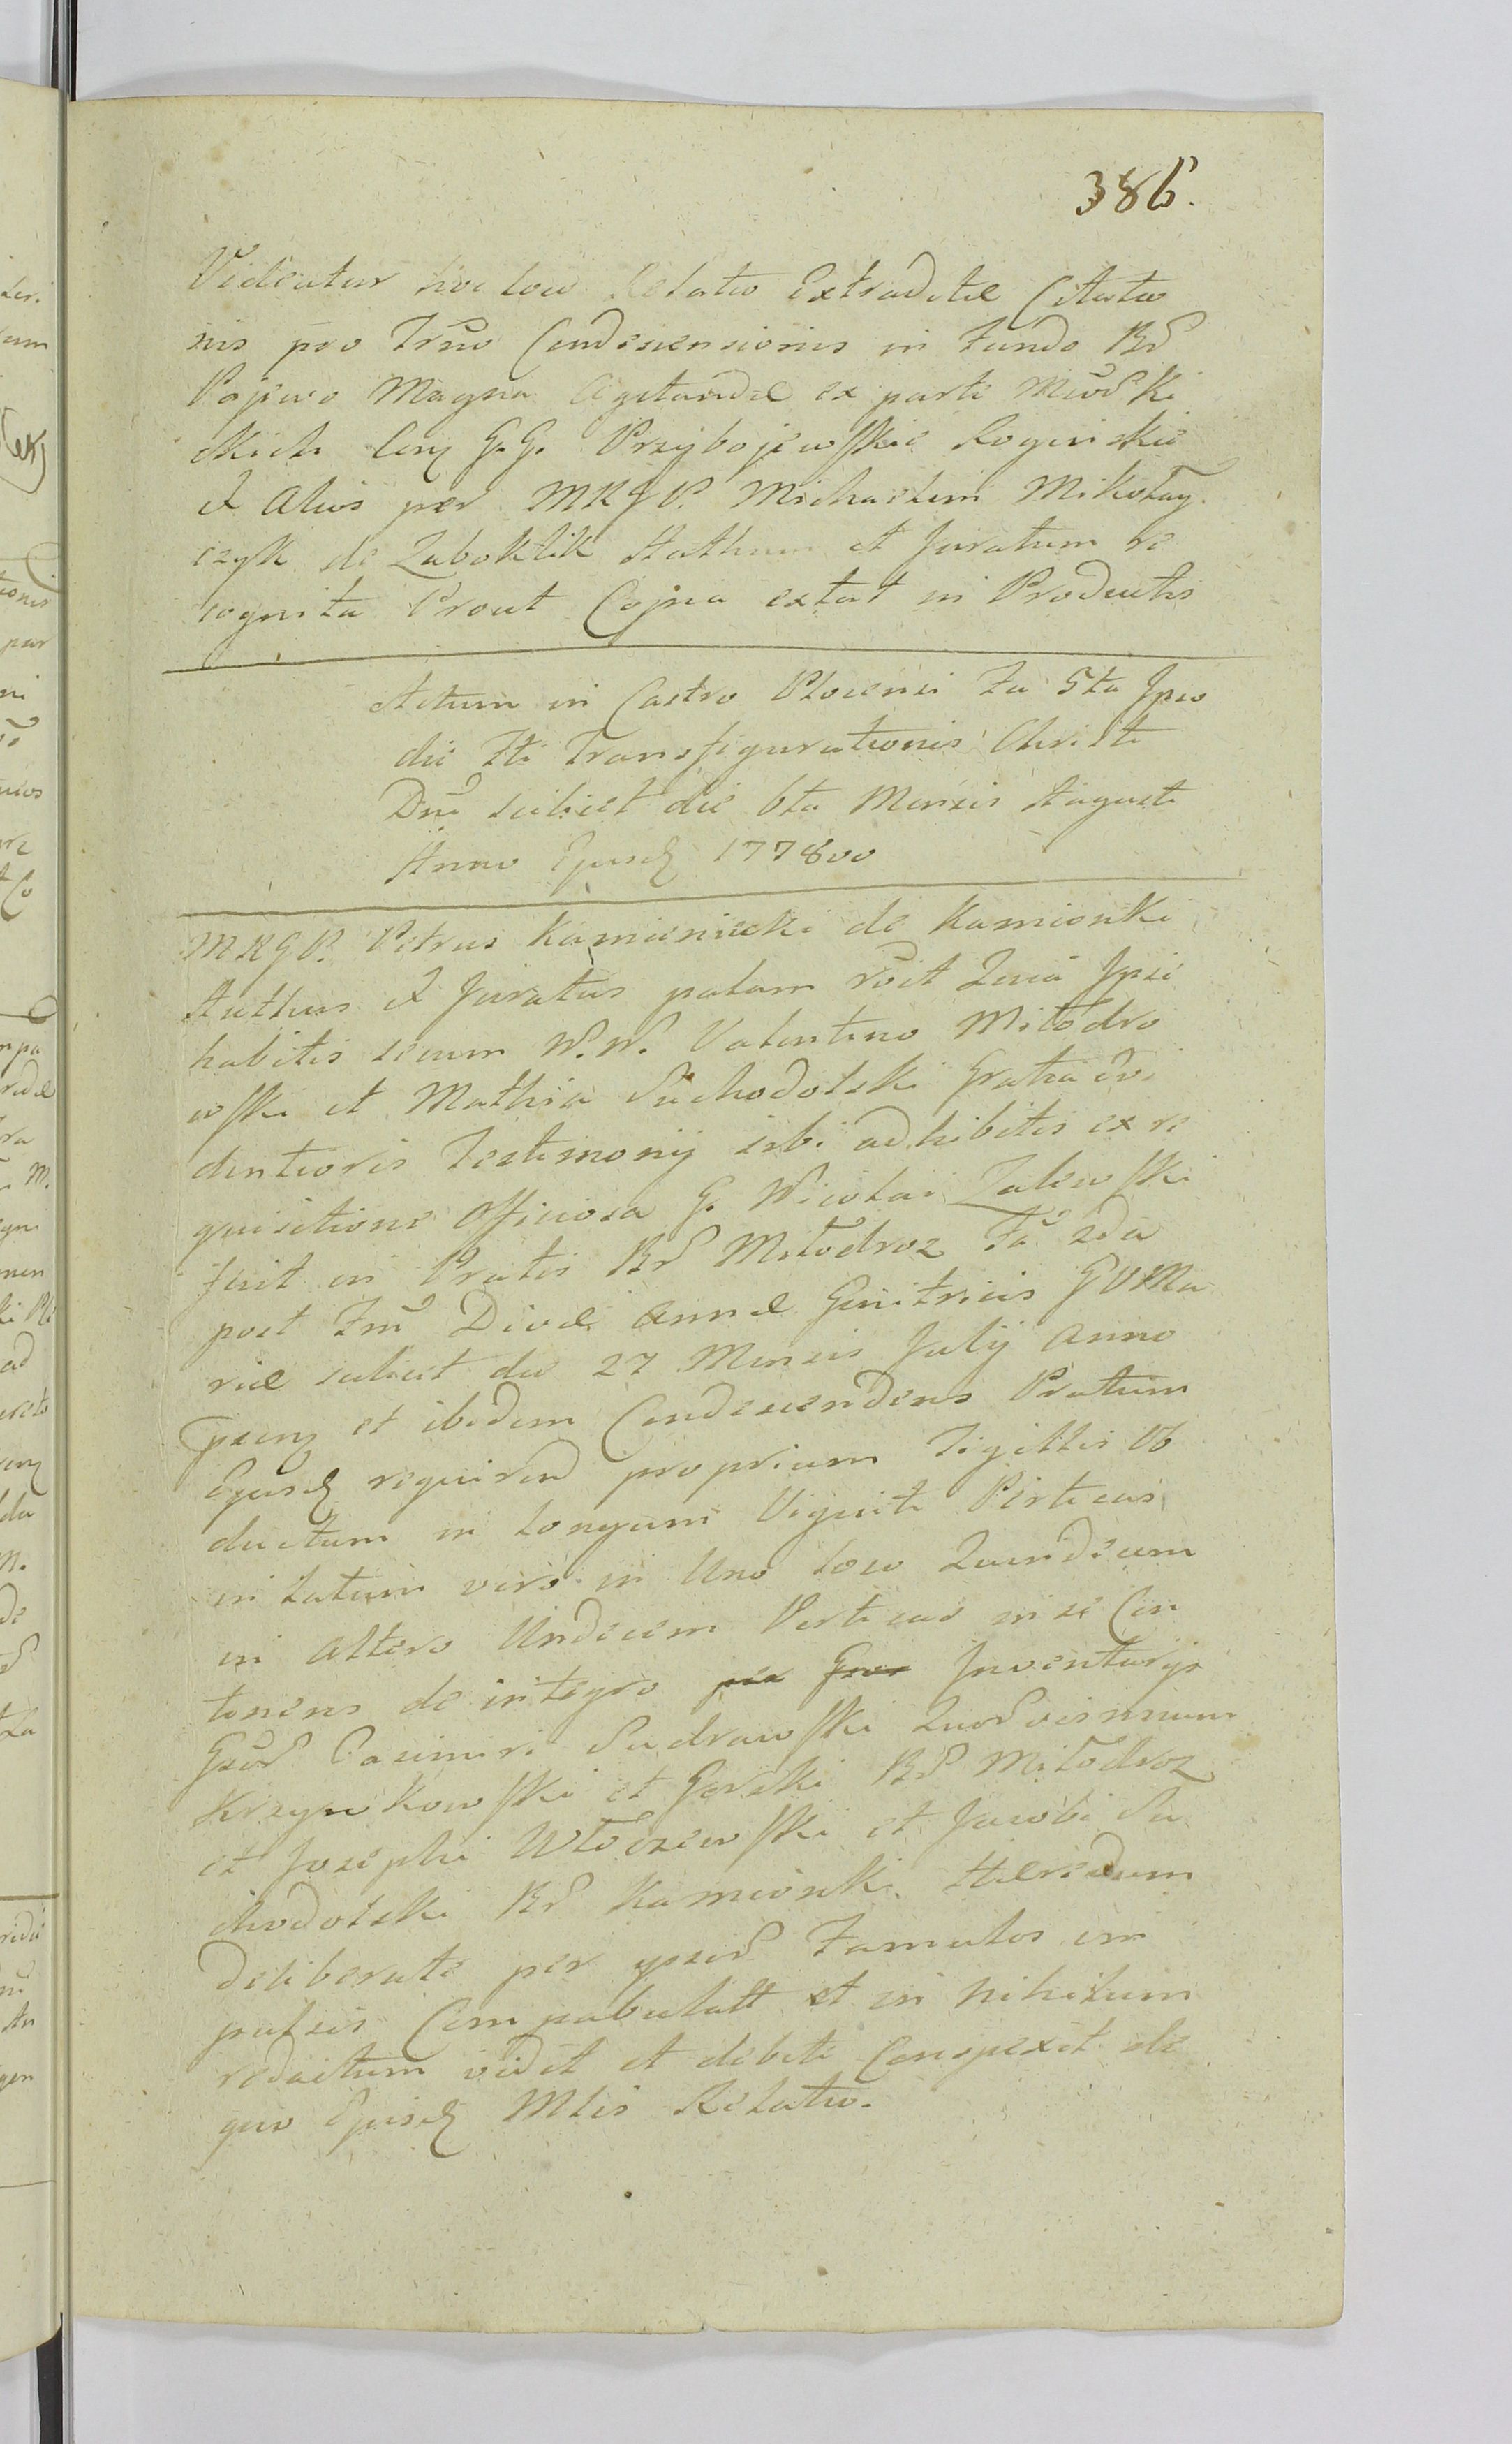 386.
Videatur hoc loco Relatio Extraditæ Citatio
nis pro Trño Condescensionis in Fundo Bñ
Popowo Magna Agitandæ ex parte
Cmq G.G. Przybojewskie Roginskie
et Alios per MRGP. Michaelem Mikołay
czyk de Zaboklik Authum et Juratum re
cognita Prout Copia extat in Productis
Actum in Castro Plocensi Fa 5ta Ipso
die Fti Transfigurationis Christi
Dnĩ scilicet die 6ta Mensis Augusti
Anno Ejusq 1778vo
MRGP. Petrus Kamieniecki de Kamionki
Authus et Juratus palam rõit Quia Ipse
habitis secum N.N. Valentino Miłodro
wski et Mathia Suchodolski Gratia Evi
dentioris Testimonij sibi adhibitis ex re
quisitione Officiosa G. Nicolai Zalewski
fuit in Pratis Bñ Miłodroz Fã 2da
post Fm̃ Divæ Annæ Genitricis GVMa
riæ scilicet die 27 Mensis Julij Anno
pmq et ibidem Condescendens Pratum
Ejusq requiren proprium Sigillis Ob
ductum in longum Viginti Perticas
in latum vero in Uno loco Quindecim
in altero Undecim Perticas in se Con
tinens de integro per Inventarijs
Gsor Casimiri Sadrawski Quod
Krzynkowski et Gorski Bñ Miłodroz
et Josephi Włoczewski et Jacobi Su
chodolski Bñ Kamionki Hæredum
Deliberate per ipsor Famulos im
pulsis Compabulatt et in nihilum
redactum vidit et debite Conspexit de
quo Ejusq Mlis Relatio.